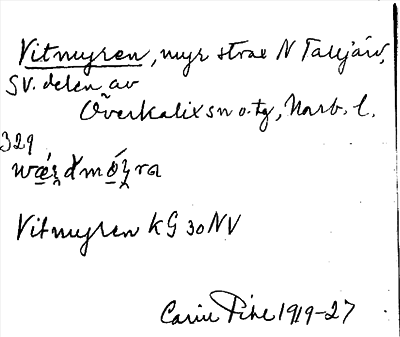 Vitmyren, myr strax N Talljärv,
SV. delen av
Överkalix sn o. tg, Norb. l.
329
Vitmyren KG 30 NV
Carin Pihl 1919-27